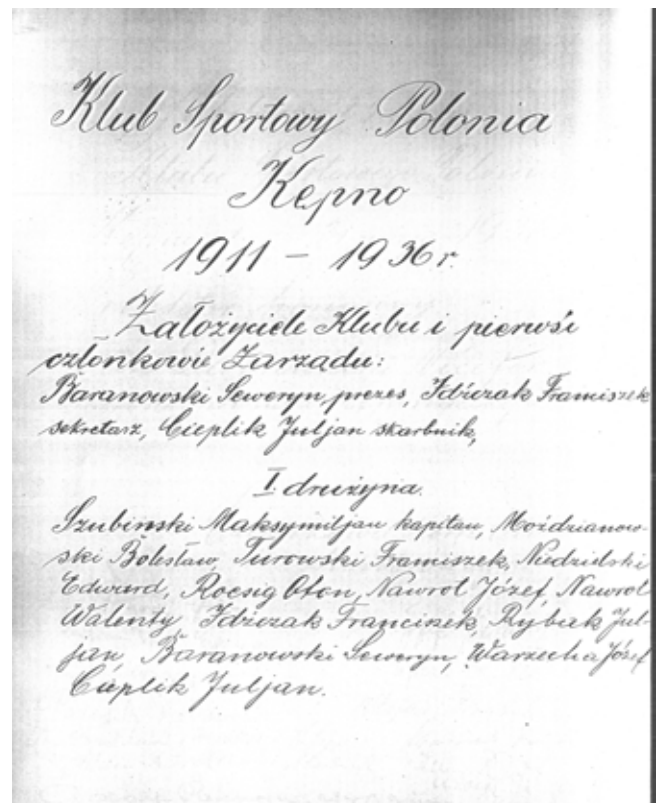 Klub Sportowy Polonia
Kępno
1911 – 1936 r.
Założyciele Klubu i pierwśi
członkowie Zarządu:
Baranowski Seweryn, prezes, Idźczak Franciszek
sekretarz, Cieplik Juljan skarbnik,
I drużyna.
Szubinski Maksymiljan kapitan, Moździanow-
ski Bolesław, Turowski Franciszek, Niedzielski
Edward, Roesig Oton, Nawrot Józef, Nawrot
Walenty, Idźczak Franciszek, Rybak Jul-
jan, Baranowski Seweryn, Warzecha Józef
Cieplik Juljan.